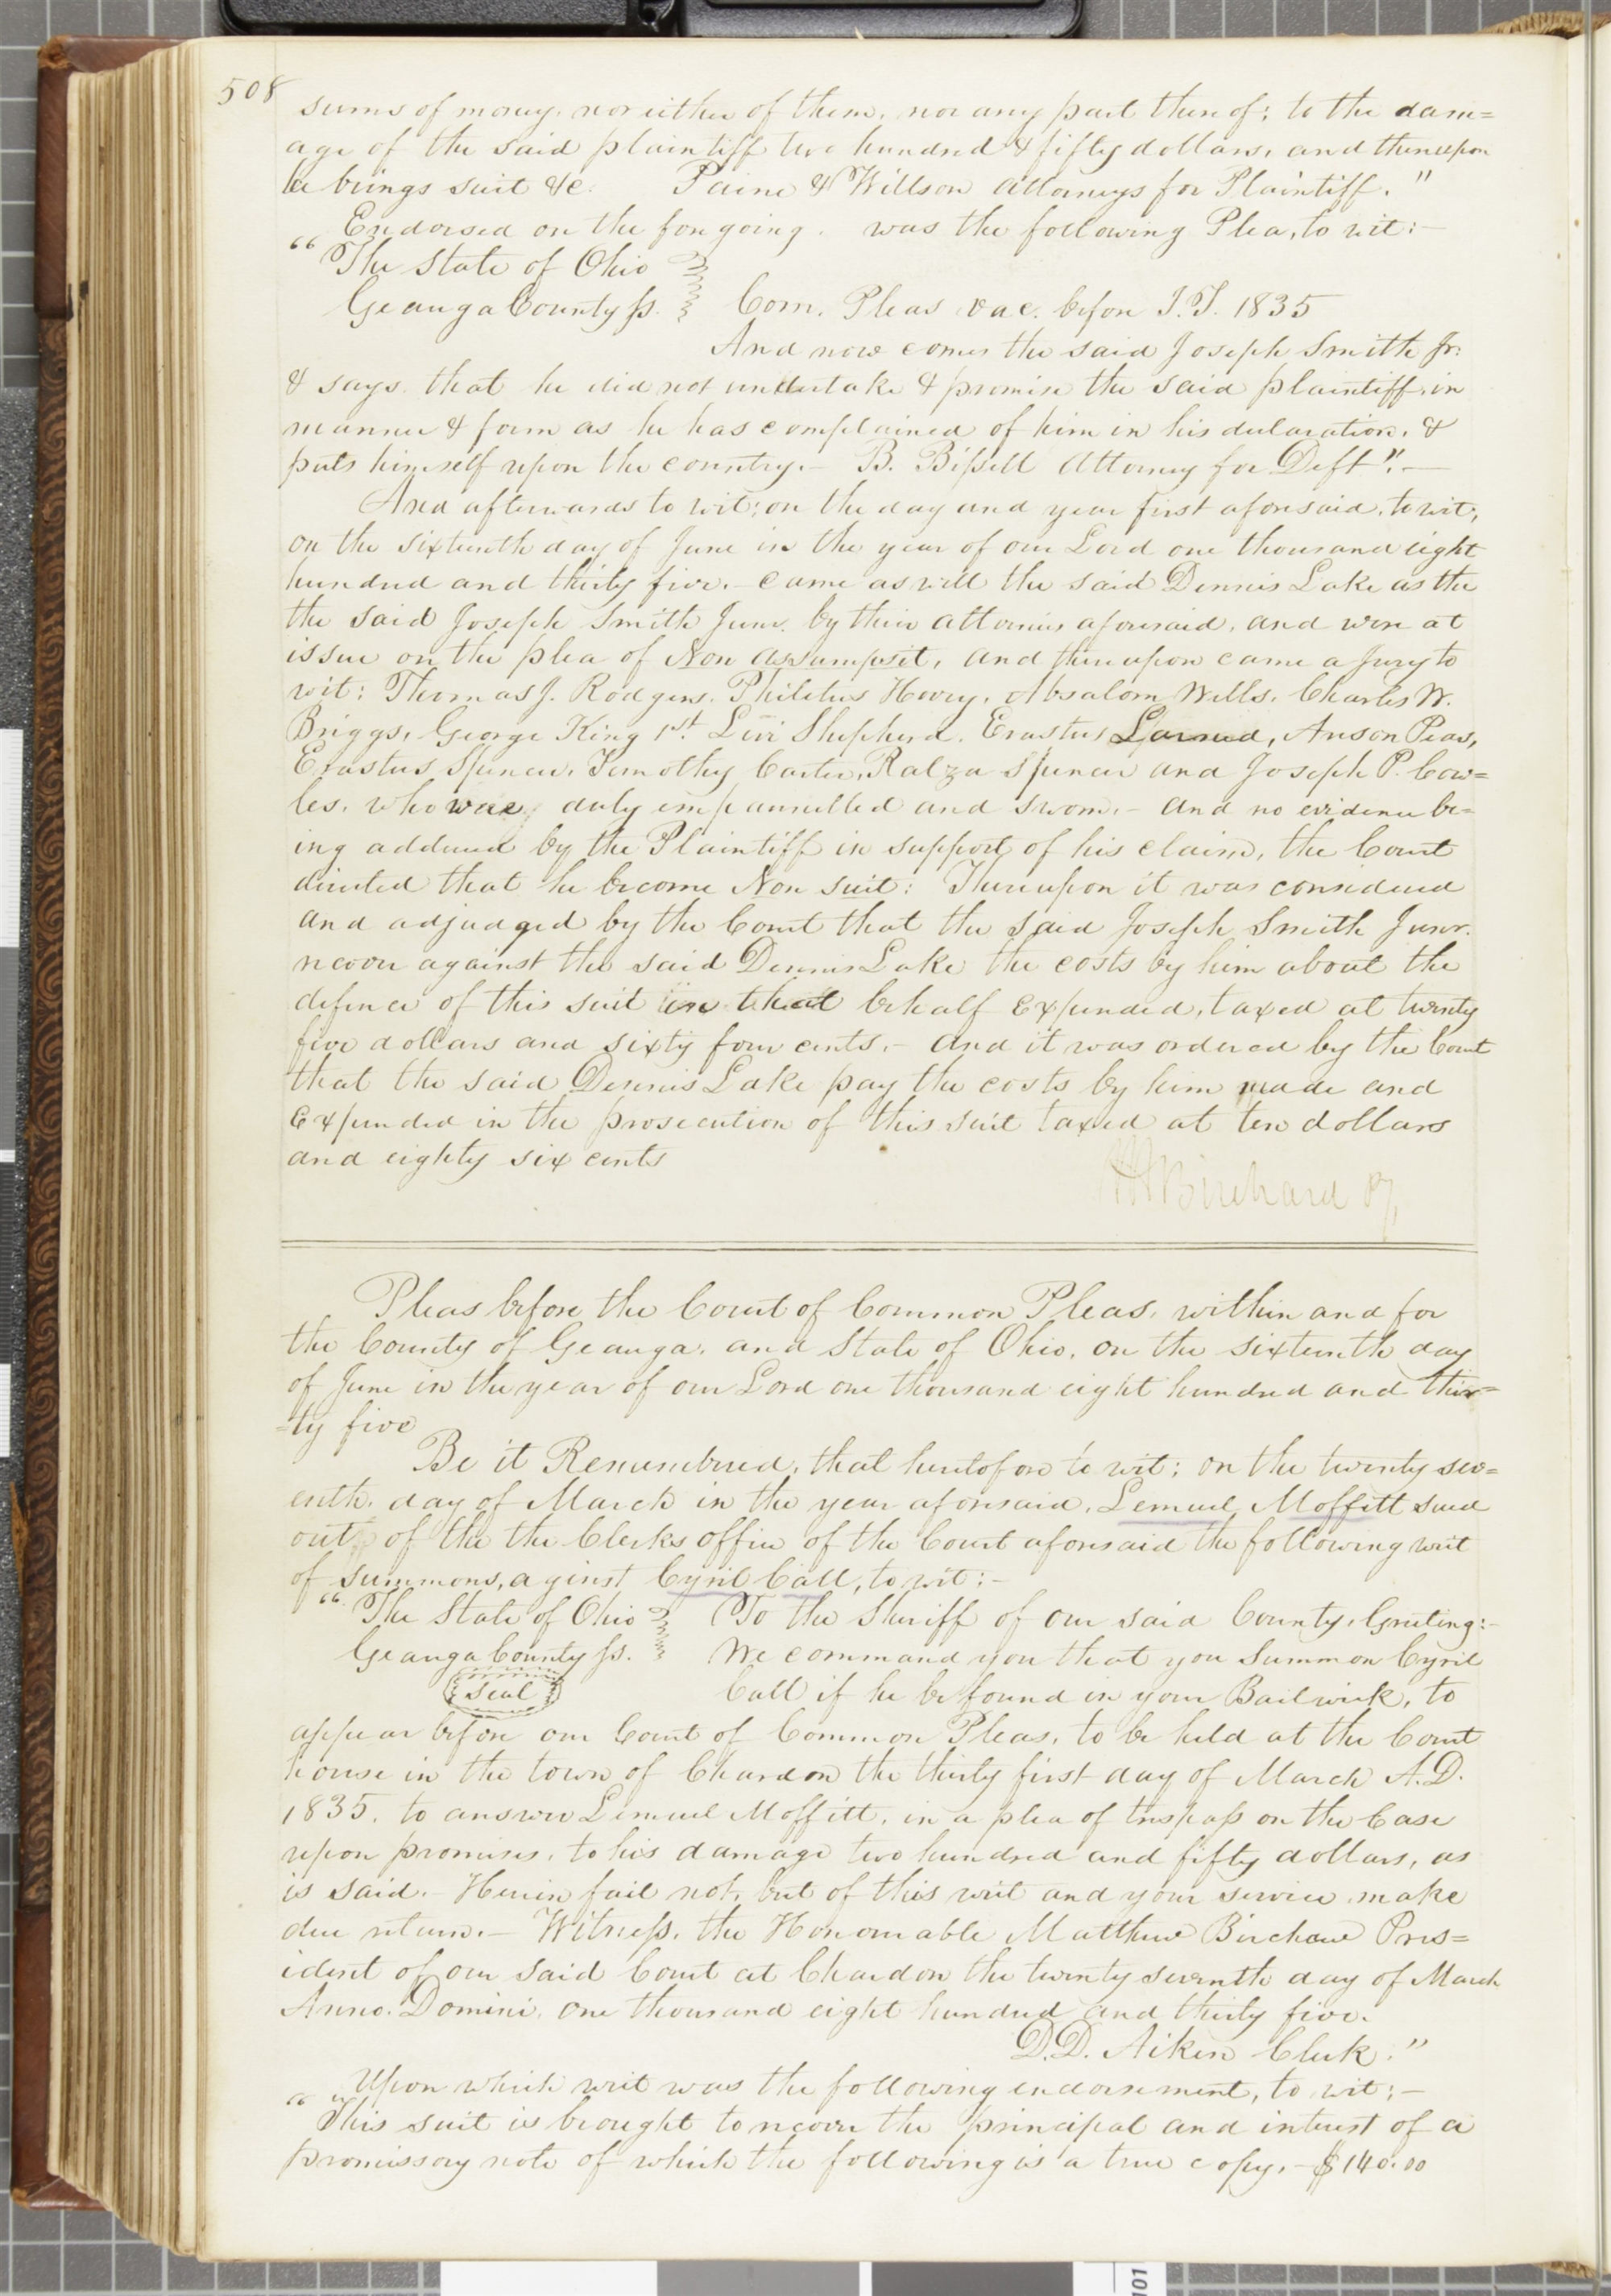 508
sums of money, nor either of them, nor any part thereof; to the dam=
age of the said plaintiff two hundred & fifty dollars, and thereupon
he brings suit &c. Paine & Willson Attorneys for Plaintiff."
Endorsed on the foregoing was the following Plea, to wit:—
"The State of Ohio
Geauga County ss. Com. Pleas vac. before J.T. 1835
And now comes the said Joseph Smith Jr.
& says that he did not undertake & promise the said plaintiff in
manner & form as he has complained of him in his declaration, &
puts himself upon the country.— B. Bissell Attorney for Deft".—
And afterwards to wit; on the day and year first aforesaid, to wit;
on the sixteenth day of June in the year of our Lord one thousand eight
hundred and thirty five.— came as well the said Dennis Lake as the
the said Joseph Smith Junr. by their attornies aforesaid, and were at
issue on the plea of Non assumpsit, and thereupon came a Jury to
wit: Thomas J. Rodgers, Philetus Hovey, Absalom Wells, Charles W.
Briggs, George King 1st. Levi Shepherd, Erastus Larned, Anson Peas,
Erastus Spencer, Temothy Carter, Ralza Spencer and Joseph P. Cow=
les, who were duly empannelled and sworn.— and no evidence be=
ing adduced by the Plaintiff in support of his claim, the Court
directed that he become Non suit: Thereupon it was considered
and adjudged by the Court that the said Joseph Smith Junr.
recover against the said Dennis Lake the costs by him about the
defence of this suit in that behalf expended, taxed at twenty
five dollars and sixty four cents.— and it was ordered by the Court
that the said Dennis Lake pay the costs by him made and
expended in the prosecution of this suit taxed at ten dollars
and eighty six cents
M Birchard Pj
Pleas before the Court of Common Pleas, within and for
the County of Geauga, and State of Ohio, on the sixteenth day
of June in the year of our Lord one thousand eight hundred and thir=
=ty five
Be it Remembered, that heretofore to wit; on the twenty sev=
enth, day of March in the year aforesaid, Lemuel Moffitt sued
out of the the Clerks office of the Court aforesaid the following writ
of summons, aginst Cyril Call, to wit:—
"The State of Ohio To the Sheriff of our said County, Greeting:—
Geauga County ss. We command you that you summon Cyril
Seal Call if he be found in your Bailwick, to
appear before our Court of Common Pleas, to be held at the Court
house in the town of Chardon the thirty first day of March A.D.
1835. to answer Lemuel Moffitt, in a plea of trespass on the Case
upon promises, to his damage two hundred and fifty dollars, as
is said.— Herein fail not, but of this writ and your service make
due return.— Witness, the Honourable Matthew Birchard Pres=
ident of our said Court at Chardon the twenty seventh day of March
Anno. Domini, one thousand eight hundred and thirty five.
D.D. Aiken Clerk."
Upon which writ was the following endorsement, to wit;—
"This suit is brought to recover the principal and interest of a
promissory note of which the following is a true copy.— $140.00
101